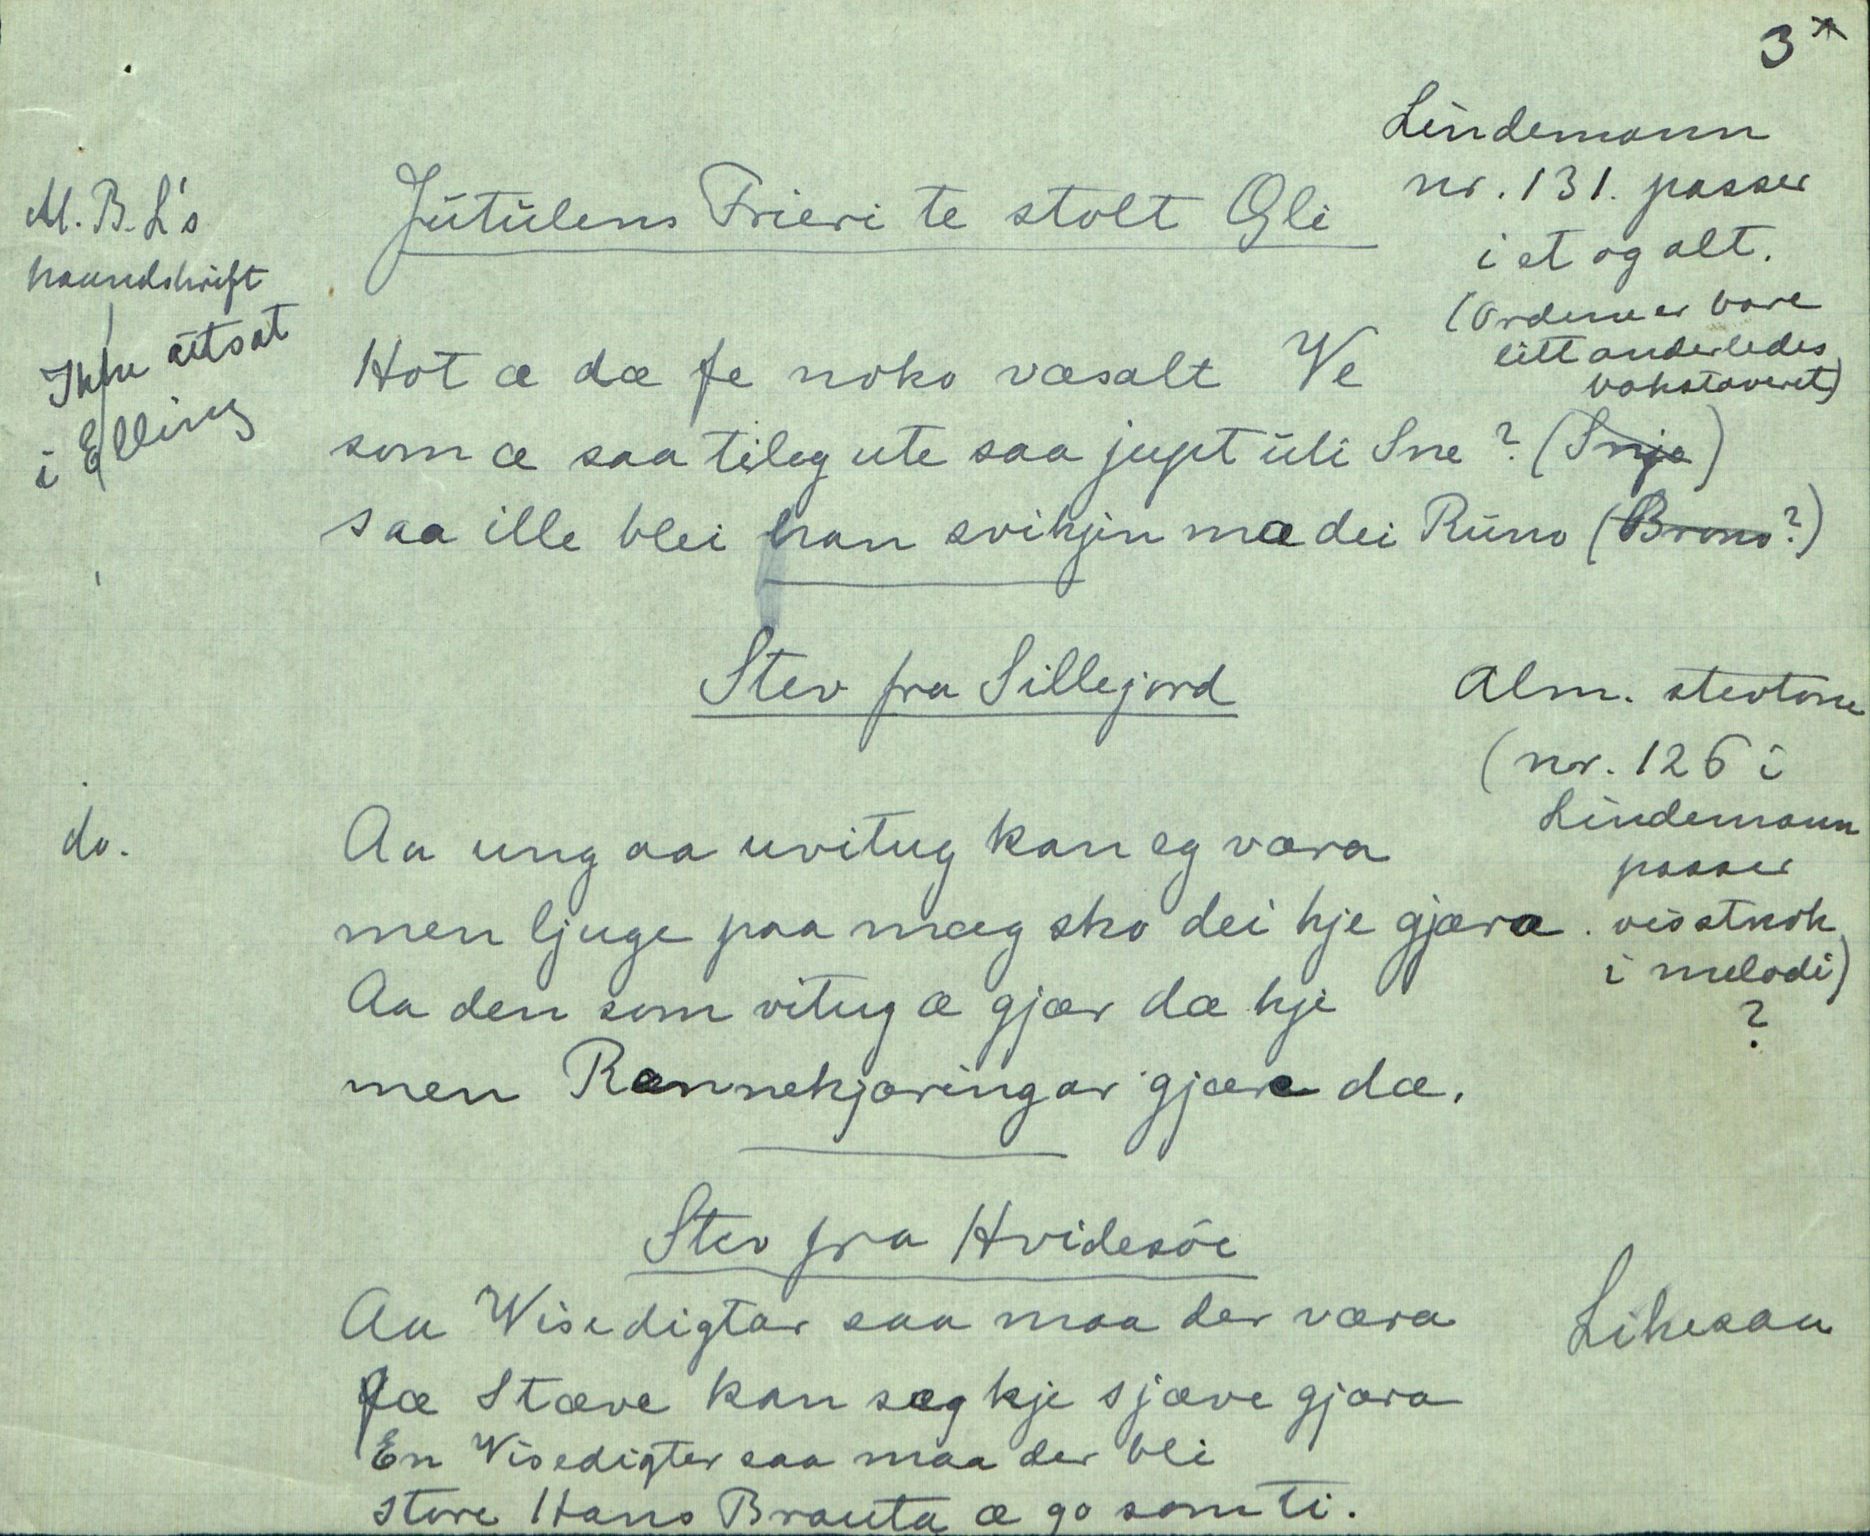 3*
Lindemann
nr. 131. passer
i et og alt.
(Ordene er bare
litt anderledes
bokstaveret)
M. B. L's
haandskrift
Ikke utsat
i Elling
Jutulens Frieri te stolt Gli
Hot æ dæ fe noko væsalt Ve
som æ saa tileg ute saa jupt uti Sne? (Snje)
saa ille blei han svikjin mæ dei Runo (Brono?)
Stev fra Sillejord
Alm. stevtone
(nr. 126 i
Lindemann
passer
visstnok
i melodi)
?
do.
Aa ung aa uvitug kan eg væra
men ljuge paa mæg sko dei kje gjæra.
Aa den som vitug æ gjær dæ kje
men Rennekjæringar gjære dæ.
Stev fra Hvidesöe
Likesaa
Aa Wisedigtar saa maa der væra
fæ Stæve kan sæg kje sjæve gjæra
En Visedigter saa maa der bli
store Hans Brauta æ go som ti.